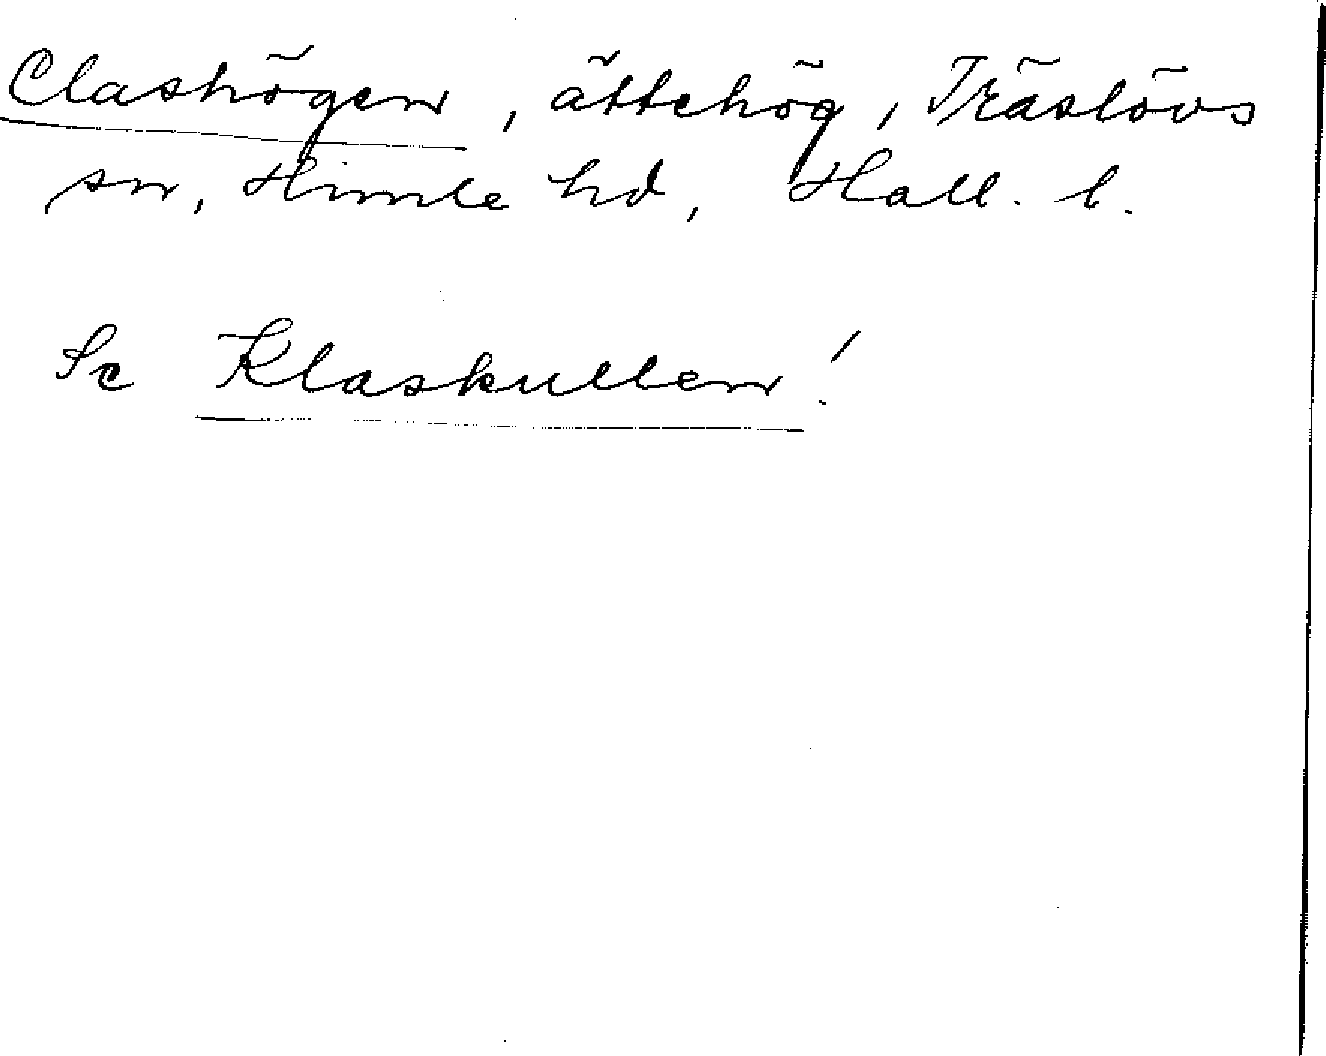 Clashögen, ättehög, Träslövs
sn, Himle hd, Hall. l.
Se Klaskullen!